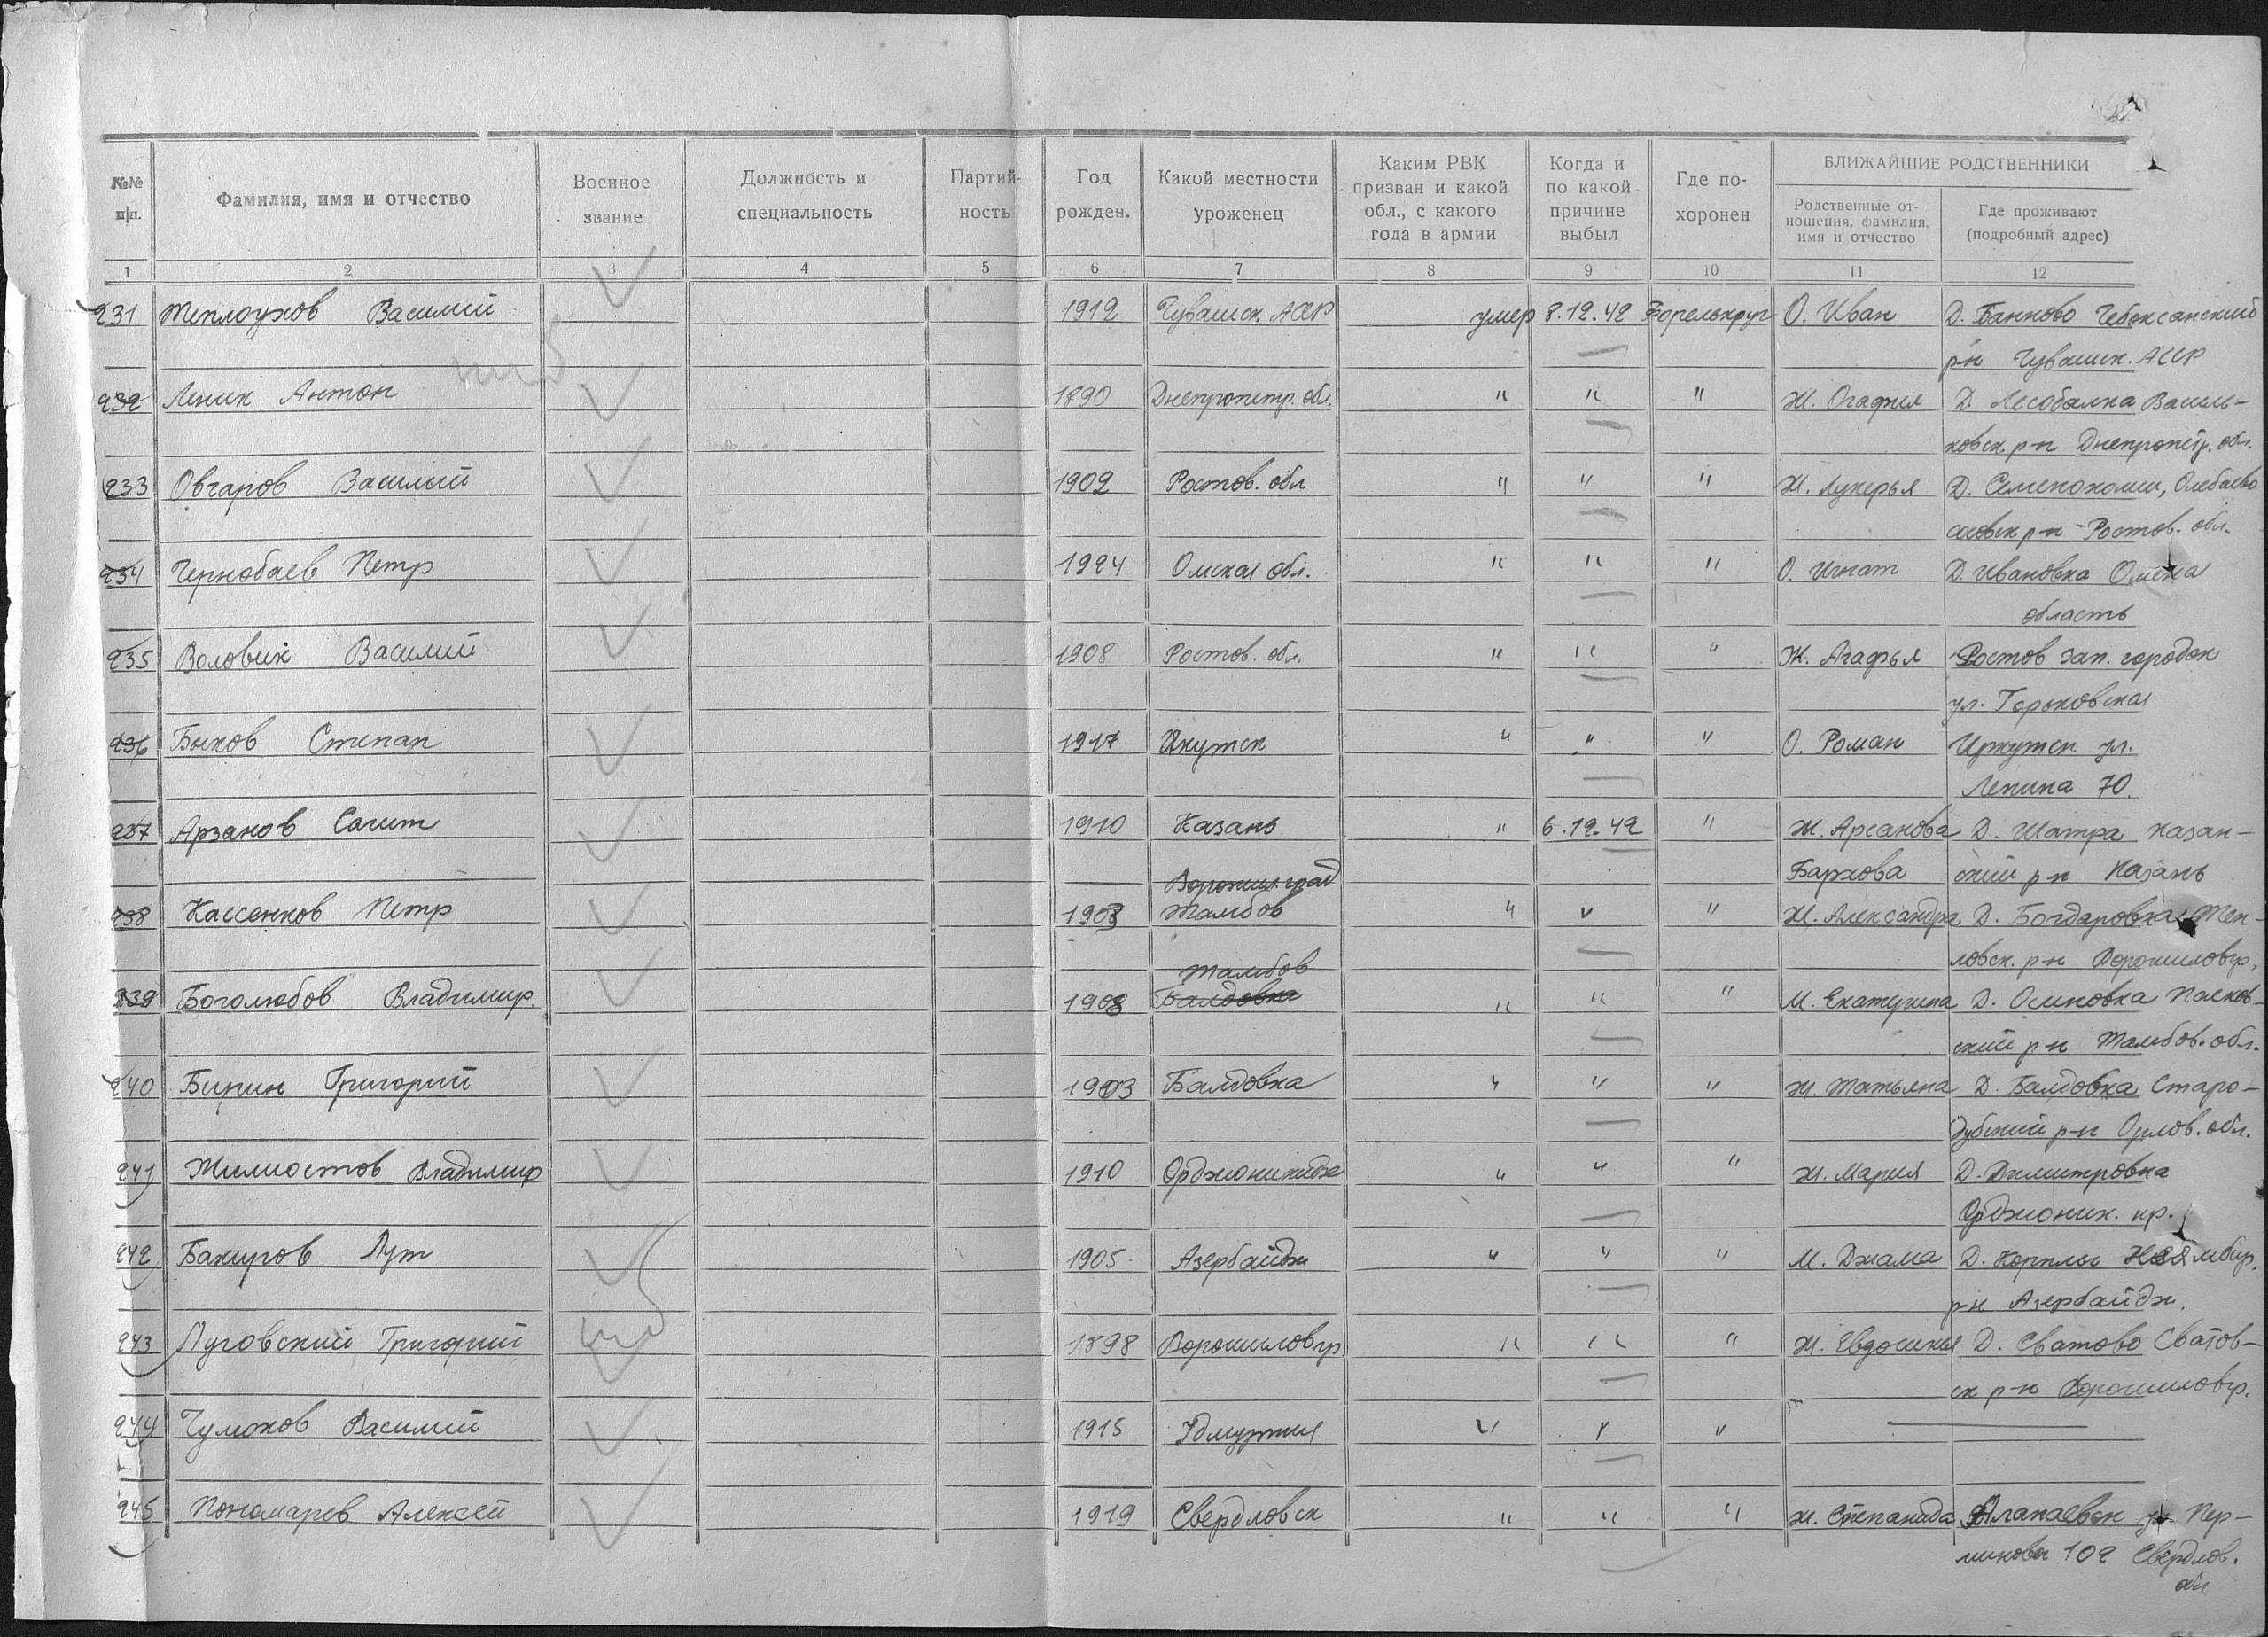 №№ п|п.
Фамилия, имя и отчество
Военное звание
Должность и специальность
Партий-ность
Год рожден.
Какой местности уроженец
Каким РВК призван и какой обл., с какого года в армии
Когда и по какой причине выбыл
Где по-хоронен
БЛИЖАЙШИЕ РОДСТВЕННИКИ
Родственные от-ношения, фамилия, имя и отчество
Где проживают (подробный адрес)
1 2 3 4 5 6 7 8 9 10 11 12
231 Теплоухов Василий 1912 Чувашск. АССР умер 8.12.42 Форелькруг О. Иван Д. Банново Чебоксанский
р-н Чувашск. АССР
232 Леник Антон 1890 Днепропетр. обл. " " " Ж. Огафия Д. Лесобалка Василь-
ковск. р-н Днепропетр. обл.
233 Овчаров Василий 1902 Ростов. обл " " " Ж. Лукерья Д.
р-н Ростов. обл.
234 Чернобаев Петр 1924 Омская обл. " " " О. Игнат Д. Ивановка Омска
область
235 Воловик Василий 1908 Ростов. обл. " " " Ж. Агафья Ростов зап. городок
ул. Горьковская
236 Быков Степан 1917 Икутск " " " О. Роман Иркутск ул.
Ленина 70.
237 Арзанов Сагит 1910 Казань " 6.12.42 " Ж. Арсанова Д. Шатра Казан-
Бархова ский р-н Казань
Ворошил.град
238 Кассенков Петр 1903 Тамбов " " " Ж. Александра Д. Богдаровка Теп-
ловск. р-н Ворошиловгр.
Тамбов
239 Боголюбов Владимир 1908 Балдовка " " " М. Екатерина Д. Осиновка
ский р-н Тамбов. обл.
240 Бирин Григорий 1903 Балдовка " " " Ж. Татьяна Д. Балдовка Старо-
дубский р-н Орлов. обл.
241 Жилиостов Владимир 1910 Орджоникидзе " " " Ж. Мария Д. Дмитровка
Орджоник. кр.
242 Бакиров Лут 1905 Азербайдж " " " М. Джама Д.
р-н Азербайдж.
243 Луговский Григорий 1898 Ворошиловгр " " " Ж. Евдосиния Д. Сватово Сватов-
ск р-н Ворошиловгр.
244 Чумохов Василий 1915 Удмуртия " " " —
245 Пономарев Алексей 1919 Свердловск " " " Ж. Степанида Алапаевск ул. Пер-
минова 102 Свердлов.
обл